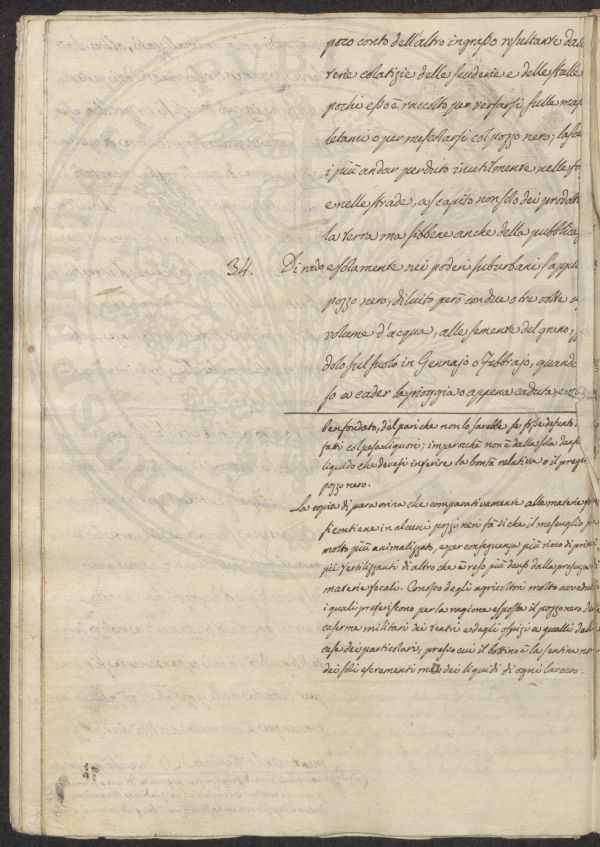 poco conto dell'altro ingrasso resultante dalle
terie colatizie delle scuderie e delle stalle
pochi esso è raccolto per versarsi sulle
letami o per mescolarsi col pozzo nero; lascia
i più andar perduto inutilmente nelle fo
e nelle strade, a scapito non solo dei prodotti
la terra ma sibbene anche della pubblica
34. Di rado e solamente nei poderi suburbani s'appli
pozzo nero, diluito però con due o tre volte
volume d'acqua, alle semente del grano,
dolo sul suolo in Gennajo o Febbrajo, quando
so a cader la pioggia o appena caduta, e
ben fondato, del pari che non lo sarebbe, se fosse desunto
fatti col pesa liquori; imperochè non è dalla sola dens
liquido che devesi inferire la bontà relativa o il preg
pozzo nero.
La copia di pura orina che comparativamente alle materie
si contiene in alcuni pozzi neri fa di che il mescuglio,
molto più animalizzato, e per conseguenza più ricco di prin
pii fertilizzanti di altro che è reso più denso dalla presenza
materie fecali. Conosco degli agricoltori molto avveduti
i quali preferiscono per la ragione esposta il pozzo nero de
caserme militari dei teatri e degli ospizi a quelli delle
case dei particolari, presso cui il bottino è la sentina no
dei soli escrementi ma dei liquidi di ogni lavacro.